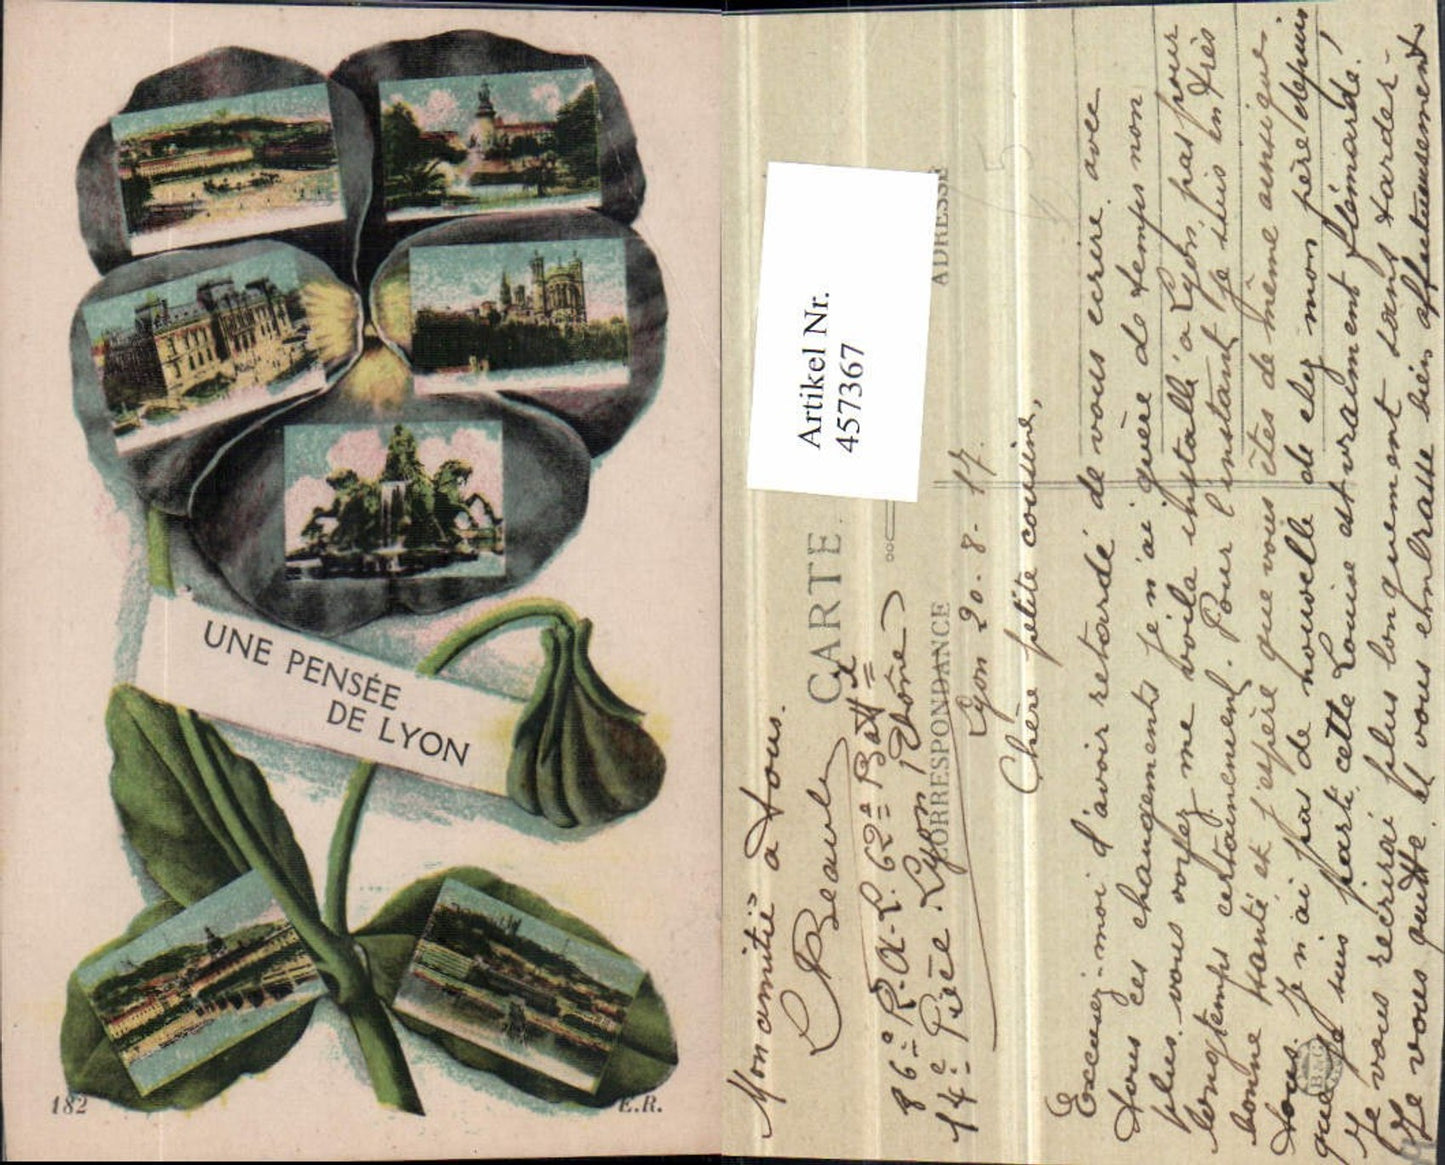 UNE PENSÉE
DE LYON
182
E.R.
Artikel Nr.
457367
CARTE
CORRESPONDANCE
ADRESSE
Lyon 20-8-17.
Chère petite cousine,
Excusez-moi d'avoir retardé de vous écrire. avec
tous ces changements je n'ai guère de temps non
plus. vous voyez me voila installé a Lyon, pas pour
longtemps certainement. Pour l'instant je suis en très
bonne santé et j'espère que vous êtes de même ainsi que
tous. Je n'ai pas de nouvelle de chez mon père depuis
que je suis parti, cette Louise est vraiment flémarde!
Je vous récrirai plus longuement sans tarder-
Je vous quitte et vous embrasse bien affectueusement
Mon amitié à tous.
86e R.A.L. 62e Batt
14e Pièce. Lyon (Rhône)